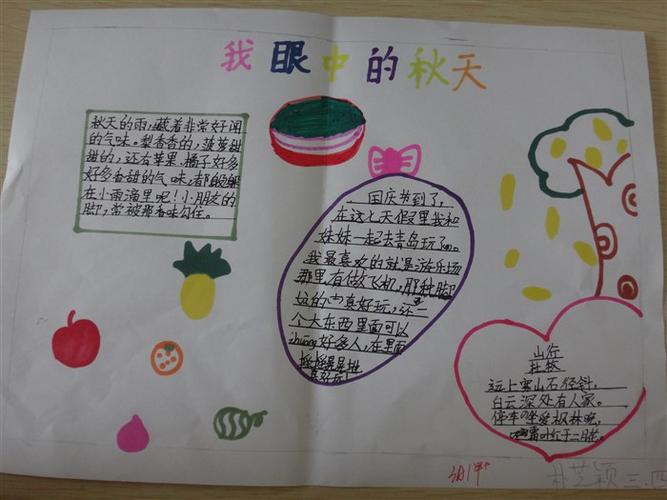 我眼中的秋天
秋天的雨，藏着非常好闻
的气味。梨香香的，菠萝甜
甜的，还有苹果、橘子好多
好多香甜的气味，都躲
在小雨滴里呢！小朋友的
脚，常被那香味勾住。
国庆节到了，
在这七天假里我和
妹妹一起去青岛玩了。
我最喜欢的就是游乐场
那里有做飞机，那种脚
真好玩，还
个大东西里面可以
zhuāng好多人，在里面
山行
杜牧
远上寒山石径斜，
白云深处有人家。
停车坐爱枫林晚，
霜叶红于二月花。
朴艺颖 三、四